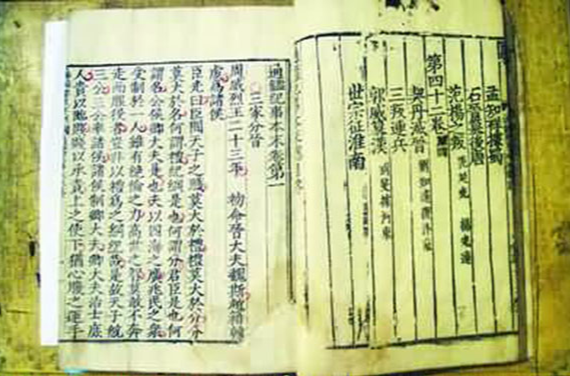 孟知祥據蜀
石晉篡後唐
范楊之叛 范延光 楊光遠
第四十二卷
契丹滅晉 劉知遠復汴京
三叛連兵
郭威篡漢 劉旻據河東
世宗征淮南
通鑑紀事本末卷第一
三家分晉
周威烈王二十三年 初命晉大夫魏斯趙籍韓
虔為諸侯
臣光曰臣聞天子之職莫大於禮禮莫大於分分
莫大於名何謂禮紀綱是也何謂分君臣是也何
謂名公侯卿大夫是也夫以四海之廣兆民之衆
受制於一人雖有絕倫之力高世之智莫敢不奔
走而服役者豈非以禮為之綱紀哉是故天子統
三公三公率諸侯諸侯制卿大夫卿大夫治士庶
人貴以臨賤賤以承貴上之使下猶心腹之運手